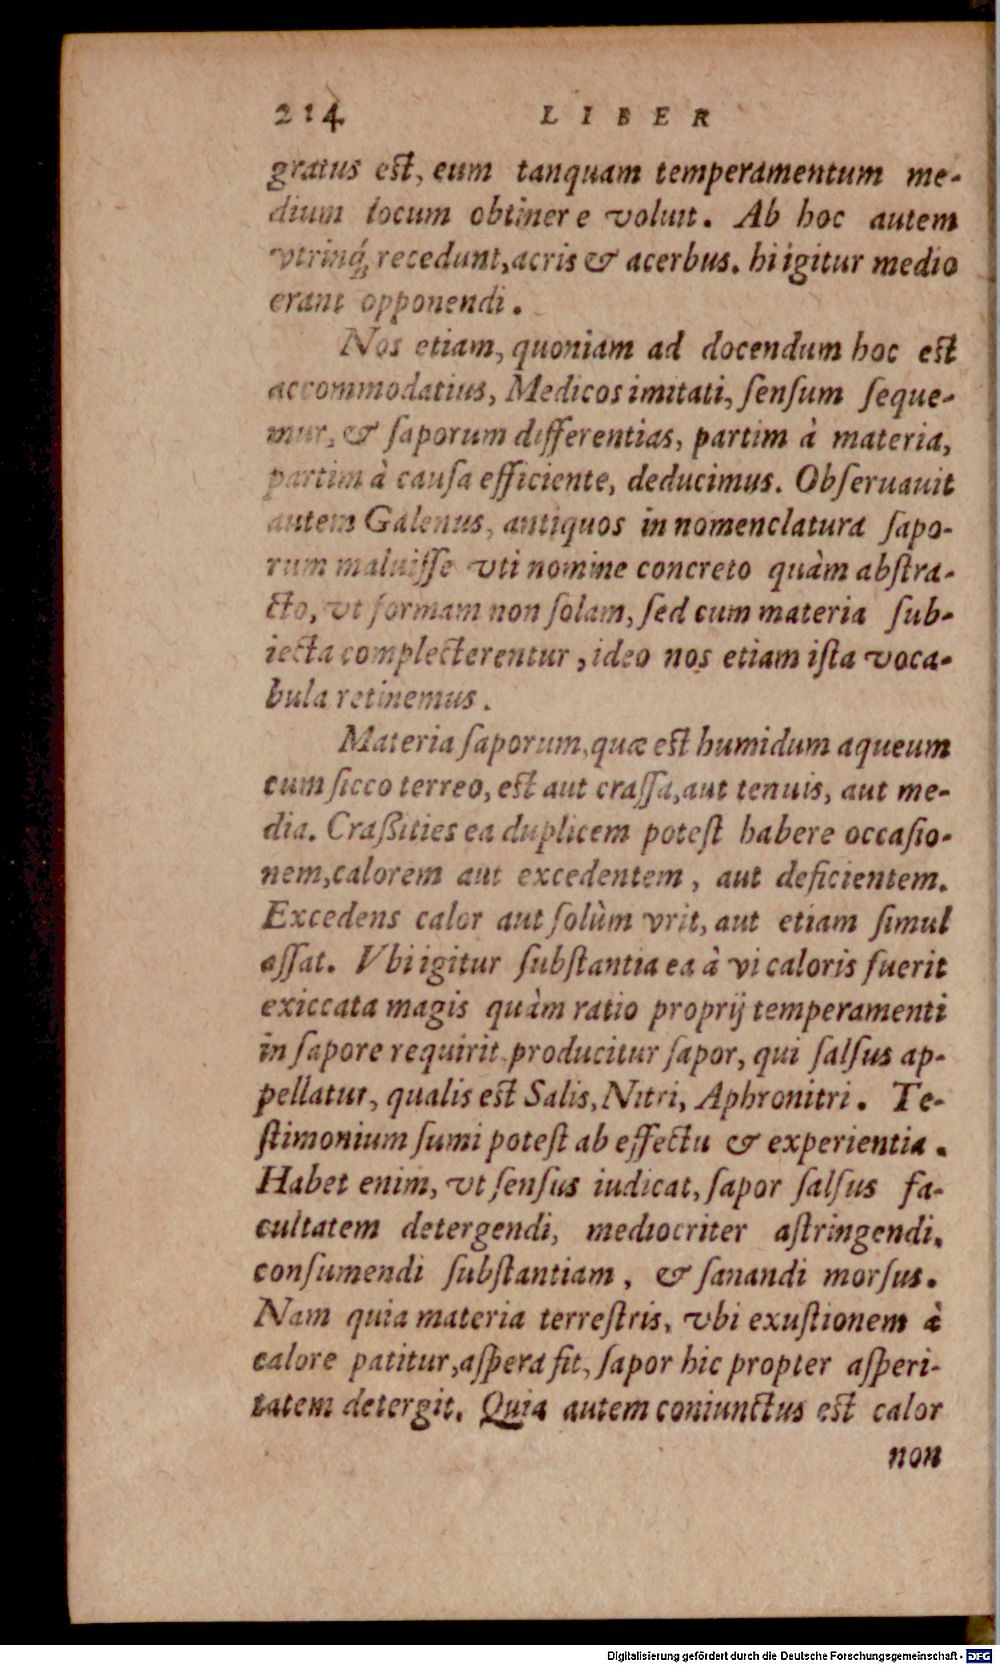 214 LIBER
gratus est, eum tanquam temperamentum me-
dium locum obtinere voluit. Ab hoc autem
vtrinq́; recedunt, acris & acerbus. hi igitur medio
erant opponendi.
Nos etiam, quoniam ad docendum hoc est
accommodatius, Medicos imitati, ſenſum ſeque-
mur, & ſaporum differentias, partim à materia,
partim à cauſa efficiente, deducimus. Obſeruauit
autem Galenus, antiquos in nomenclatura ſapo-
rum maluiſſe vti nomine concreto quàm abſtra-
cto, vt formam non ſolam, ſed cum materia ſub-
iecta complecterentur, ideo nos etiam iſta voca-
bula retinemus.
Materia ſaporum, quæ est humidum aqueum
cum ſicco terreo, est aut craſſa, aut tenuis, aut me-
dia. Craßities ea duplicem poteſt habere occaſio-
nem, calorem aut excedentem, aut deficientem.
Excedens calor aut ſolùm vrit, aut etiam ſimul
aſſat. Vbi igitur ſubſtantia ea à vi caloris fuerit
exiccata magis quàm ratio proprij temperamenti
in ſapore requirit, producitur ſapor, qui ſalſus ap-
pellatur, qualis est Salis, Nitri, Aphronitri. Te-
ſtimonium ſumi poteſt ab effectu & experientia.
Habet enim, vt ſenſus iudicat, ſapor ſalſus fa-
cultatem detergendi, mediocriter aſtringendi,
conſumendi ſubſtantiam, & ſanandi morſus.
Nam quia materia terreſtris, vbi exuſtionem à
calore patitur, aſpera fit, ſapor hic propter aſperi-
tatem detergit. Quia autem coniunctus est calor
non
Digitalisierung gefördert durch die Deutsche Forschungsgemeinschaft - DFG